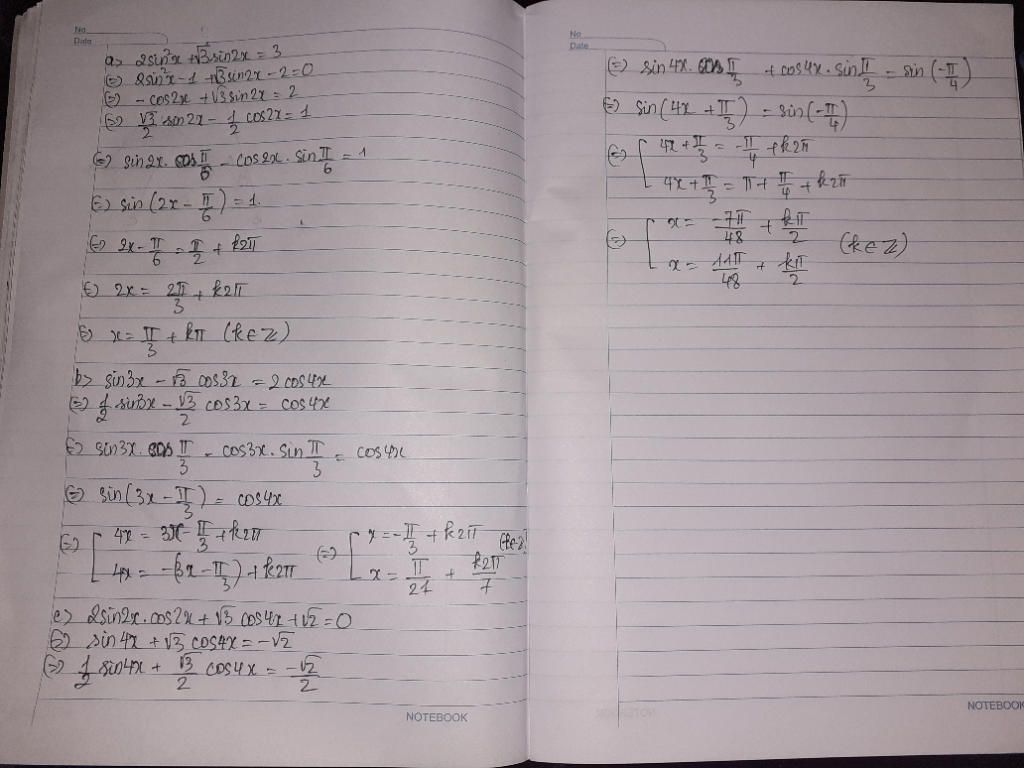 No
Date
a> 2sin²x + √3 sin2x = 3
(=) 2sin²x - 1 + √3 sin2x - 2 = 0
(=) - cos2x + √3 sin2x = 2
(=) √3/2 sin2x - 1/2 cos2x = 1
(=) sin2x. cos π/6 - cos2x. sin π/6 = 1
(=) sin (2x - π/6) = 1.
(=) 2x - π/6 = π/2 + k2π
(=) 2x = 2π/3 + k2π
(=) x = π/3 + kπ (k∈Z)
b> sin3x - √3 cos3x = 2cos4x
(=) 1/2 sin3x - √3/2 cos3x = cos4x
(=) sin3x. cos π/3 - cos3x. sin π/3 = cos4x
(=) sin(3x - π/3) = cos4x
(=) [ 4x = 3x - π/3 + k2π (=) [ x = -π/3 + k2π (k∈Z)
4x = -(3x - π/3) + k2π x = π/21 + k2π/7
c> 2sin2x. cos2x + √3 cos4x + √2 = 0
(=) sin4x + √3 cos4x = -√2
(=) 1/2 sin4x + √3/2 cos4x = -√2/2
NOTEBOOK
No
Date
(=) sin4x. cos π/3 + cos4x. sin π/3 = sin (-π/4)
(=) sin(4x + π/3) = sin(-π/4)
(=) [ 4x + π/3 = -π/4 + k2π
4x + π/3 = π + π/4 + k2π
(=) [ x = -7π/48 + kπ/2 (k∈Z)
x = 11π/48 + kπ/2
NOTEBOOK